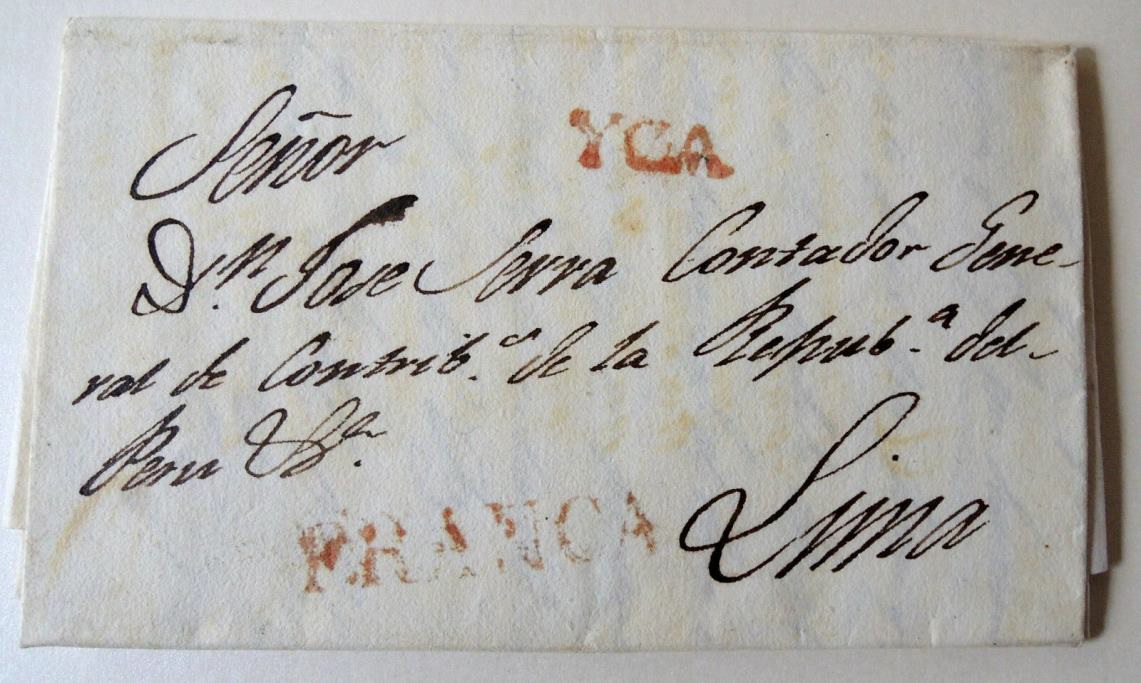 Señor
YCA
D.n Jose Serra Contador Gene-
ral de Contrib.s de la Repub.a del
Peru &a.
Lima
FRANCA